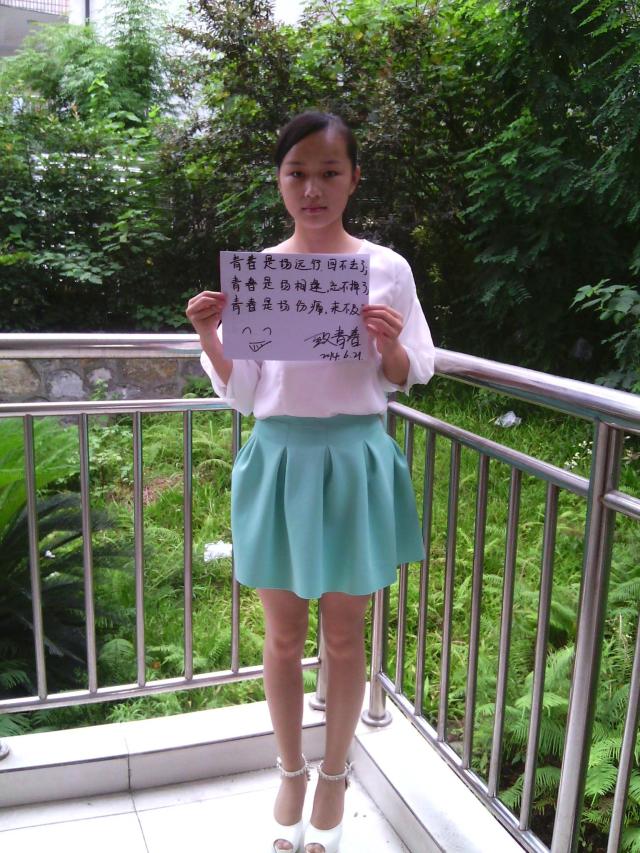 青春是场远行,回不去了,
青春是场相逢,忘不掉了
青春是场伤痛,来不及
致青春
2014.6.21